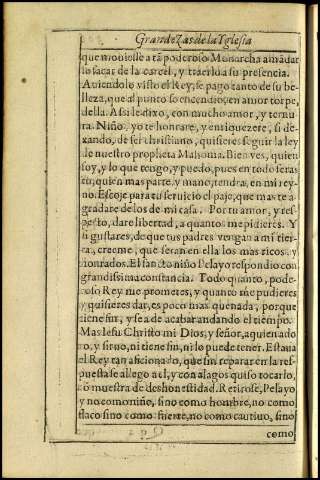 Grandezas de la Yglesia
que mouiesse a tã poderoso Monarcha a mãdar
lo sacar de la carcel, y traerlo a su presencia.
Auiendolo visto el Rey, se pago tanto de su be-
lleza, que al punto se encendio, en amor torpe,
della. Assi le dixo, con mucho amor, y ternu
ra. Niño, yo te honrare, y enriquezere, si de-
xando, de ser christiano, quisieres seguir la ley
de nuestro propheta Mahoma. Bien ves, quien
soy, y lo que tengo, y puedo, pues en todo seras
tu, quien mas parte, y mano, tendra, en mi rey-
no. Escoje para tu seruicio el paje, que mas te a-
gradare de los de mi casa. Por tu amor, y res-
pecto, dare libertad, a quantos me pidieres. Y
si gustares, de que tus padres vengan a mi tier-
ra, creeme, que seran en ella los mas ricos, y
honrados. El sancto niño Pelayo respondio con
grandissima constancia. Todo quanto, pode-
roso Rey me prometes, y quanto me pudieres
y quisieres dar, es poco mas que nada, porque
tiene fin, y se a de acabar andando el tiempo.
Mas Iesu Christo mi Dios, y señor, a quien ado
ro, y siruo, ni tiene fin, ni lo puede tener. Estaua
el Rey tan aficionado, que sin reparar en la res-
puesta se allego a el, y con alagos quiso tocarlo,
o muestra de deshonestidad. Retirose, Pelayo,
y no como niño, sino como hombre, no como
flaco sino como fuerte, no como cautiuo, sino
como